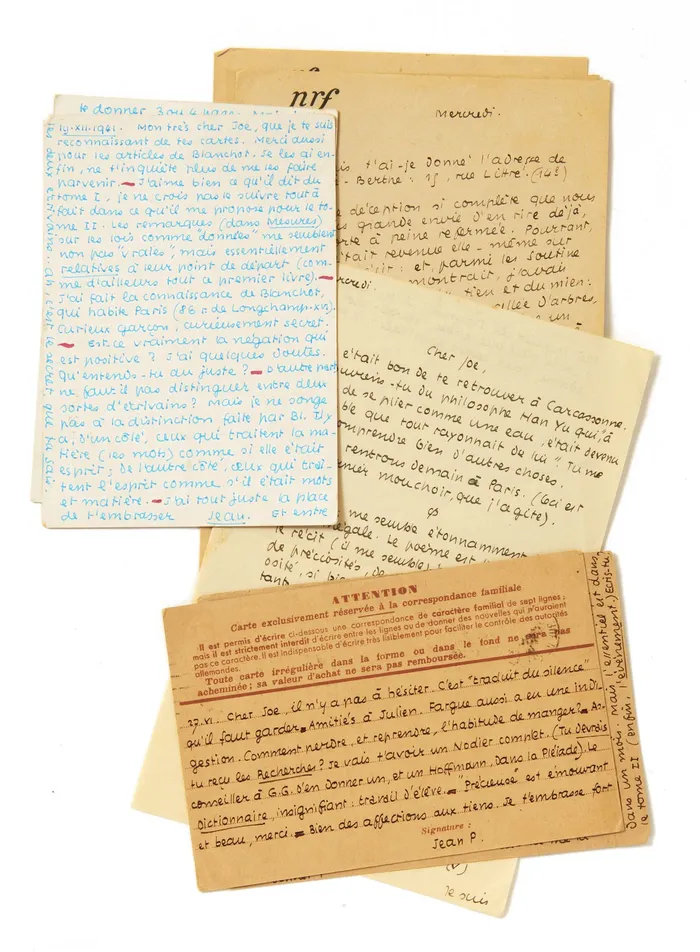 le donner
19.XII.1941. Mon très cher Joe, que je te suis
reconnaissant de tes cartes. Merci aussi
pour les articles de Blanchot. Je les ai en-
fin, ne t'inquiète plus de me les faire
parvenir. — J'aime bien ce qu'il dit du
tome I, je ne crois pas le suivre tout à
fait dans ce qu'il me propose pour le to-
me II. Les remarques (dans Mesures)
sur les lois comme "données" me semblent
non pas "vraies", mais essentiellement
relatives à leur point de départ (com-
me d'ailleurs tout a premier livre). —
J'ai fait la connaissance de Blanchot,
qui habite Paris (86 r. de Longchamp. XVI).
Curieux garçon, curieusement secret.
— Est-ce vraiment la négation qui
est positive ? J'ai quelques doutes.
Qu'entends-tu du juste ? — D'autre part
ne faut-il pas distinguer entre deux
sortes d'écrivains ? Mais je ne songe
pas à la distinction faite par Bl. Il y
a, d'un côté, ceux qui traitent la ma-
tière (les mots) comme si elle était
esprit ; de l'autre côté, ceux qui trai-
tent l'esprit comme s'il était mots
et matière. — J'ai tout juste la place
de t'embrasser Jean. Et entre
les deux écrivains. Ah, c'est le secret que
nrf
Mercredi.
t'ai-je donné l'adresse de
Berthe : 15, rue Littré. (14e)
déception si complète que nous
grande envie d'en rire déjà,
à peine refermée. Pourtant,
était revenue elle-même sur
: et, parmi les Soutine
montrait, j'avais
tien et du mien :
d'arbres,
un
Cher Joe,
c'était bon de te retrouver à Carcassonne.
-tu du philosophe Han Yu qui, à
de se plier comme une eau, était devenu
que tout rayonnait de lui" Tu me
comprendre bien d'autres choses.
rentrons demain à Paris. (Ceci est
mouchoir, que j'agite).
me semble étonnamment
le récit (il me semble)
Le poème est
de préciosités, de
osité, si
tant
ATTENTION
Carte exclusivement réservée à la correspondance familiale
Il est permis d'écrire ci-dessous une correspondance de caractère familial de sept lignes ;
mais il est strictement interdit d'écrire entre les lignes ou de donner des nouvelles qui n'auraient
pas ce caractère. Il est indispensable d'écrire très lisiblement pour faciliter le contrôle des autorités
allemandes.
Toute carte irrégulière dans la forme ou dans le fond ne sera pas
acheminée ; sa valeur d'achat ne sera pas remboursée.
27.VI. Cher Joe, il n'y a pas à hésiter. C'est "traduit du silence"
qu'il faut garder. — Amitiés à Julien. Fargue aussi a eu une indi-
gestion. Comment perdre, et reprendre, l'habitude de manger ? — As-
tu reçu les Recherches ? Je vais t'avoir un Nodier complet. (Tu devrais
conseiller à G.G. d'en donner un, et un Hoffmann, dans la Pléiade). Le
Dictionnaire, insignifiant : travail d'élève. — "Précieuse" est émouvant
et beau, merci. — Bien des affections aux tiens. Je t'embrasse fort
Signature :
Jean P.
Dans un mois. Mais l'essentiel est dans
le tome II (enfin, l'événement.) Ecris-tu
Je suis